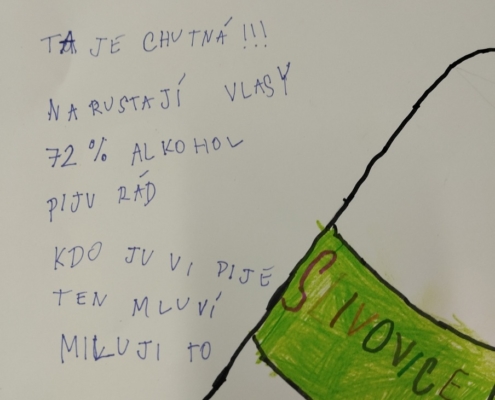 TA JE CHUTNÁ!!!
NARUSTAJÍ VLASY
72% ALKOHOL
PIJU RÁD
KDO JU VI PIJE
TEN MLUVÍ
MILUJI TO
SLIVOVICE